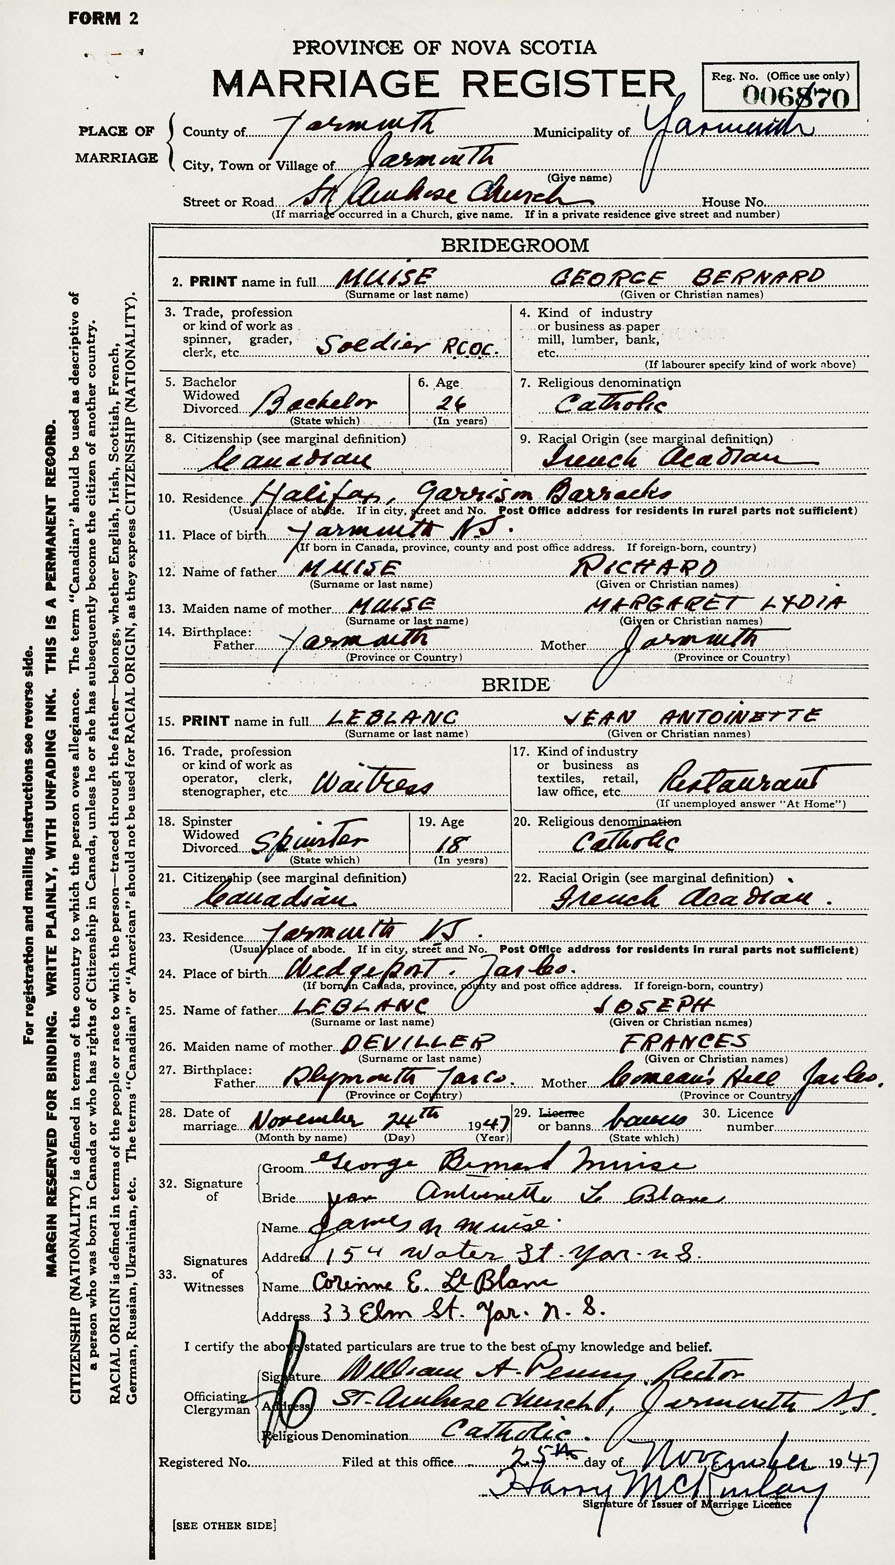 FORM 2
PROVINCE OF NOVA SCOTIA
MARRIAGE REGISTER
Reg. No. (Office use only)
006870
PLACE OF MARRIAGE
County of Yarmouth Municipality of Yarmouth
City, Town or Village of Yarmouth
(Give name)
Street or Road St Ambrose Church House No.
(If marriage occurred in a Church, give name. If in a private residence give street and number)
BRIDEGROOM
2. PRINT name in full MUISE GEORGE BERNARD
(Surname or last name) (Given or Christian names)
3. Trade, profession
or kind of work as
spinner, grader,
clerk, etc. Soldier RCOC.
4. Kind of industry
or business as paper
mill, lumber, bank,
etc.
(If labourer specify kind of work above)
5. Bachelor
Widowed
Divorced Bachelor
(State which)
6. Age
26
(In years)
7. Religious denomination
Catholic
8. Citizenship (see marginal definition)
Canadian
9. Racial Origin (see marginal definition)
French Acadian
10. Residence Halifax, Garrison Barracks
(Usual place of abode. If in city, street and No. Post Office address for residents in rural parts not sufficient)
11. Place of birth Yarmouth N.S.
(If born in Canada, province, county and post office address. If foreign-born, country)
12. Name of father MUISE RICHARD
(Surname or last name) (Given or Christian names)
13. Maiden name of mother MUISE MARGARET LYDIA
(Surname or last name) (Given or Christian names)
14. Birthplace:
Father Yarmouth Mother Yarmouth
(Province or Country) (Province or Country)
BRIDE
15. PRINT name in full LEBLANC JEAN ANTOINETTE
(Surname or last name) (Given or Christian names)
16. Trade, profession
or kind of work as
operator, clerk,
stenographer, etc. Waitress
17. Kind of industry
or business as
textiles, retail,
law office, etc. Restaurant
(If unemployed answer "At Home")
18. Spinster
Widowed
Divorced Spinster
(State which)
19. Age
18
(In years)
20. Religious denomination
Catholic
21. Citizenship (see marginal definition)
Canadian
22. Racial Origin (see marginal definition)
French Acadian.
23. Residence Yarmouth NS.
(Usual place of abode. If in city, street and No. Post Office address for residents in rural parts not sufficient)
24. Place of birth Wedgeport. Yar Co.
(If born in Canada, province, county and post office address. If foreign-born, country)
25. Name of father LEBLANC JOSEPH
(Surname or last name) (Given or Christian names)
26. Maiden name of mother DEVILLER FRANCES
(Surname or last name) (Given or Christian names)
27. Birthplace:
Father Plymouth Yar Co. Mother Comeau's Hill Yar Co.
(Province or Country) (Province or Country)
28. Date of
marriage November 24th 1947
(Month by name) (Day) (Year)
29. Licence
or banns banns
(State which)
30. Licence
number
32. Signature of
Groom George Bernard Muise
Bride Jean Antoinette Le Blanc
33. Signatures of Witnesses
Name James N Muise.
Address 154 Water St. Yar. N.S.
Name Corinne E. LeBlanc
Address 33 Elm St. Yar. N.S.
I certify the above stated particulars are true to the best of my knowledge and belief.
Officiating Clergyman
Signature William A. Penny, Rector
Address St. Ambrose Church, Yarmouth N.S.
Religious Denomination Catholic.
Registered No. Filed at this office 25th day of November 1947
Harry McKinlay
Signature of Issuer of Marriage Licence
[SEE OTHER SIDE]
For registration and mailing instructions see reverse side.
MARGIN RESERVED FOR BINDING. WRITE PLAINLY, WITH UNFADING INK. THIS IS A PERMANENT RECORD.
CITIZENSHIP (NATIONALITY) is defined in terms of the country to which the person owes allegiance. The term "Canadian" should be used as descriptive of
a person who was born in Canada or who has rights of Citizenship in Canada, unless he or she has subsequently become the citizen of another country.
RACIAL ORIGIN is defined in terms of the people or race to which the person—traced through the father—belongs, whether English, Irish, Scottish, French,
German, Russian, Ukrainian, etc. The terms "Canadian" or "American" should not be used for RACIAL ORIGIN, as they express CITIZENSHIP (NATIONALITY).